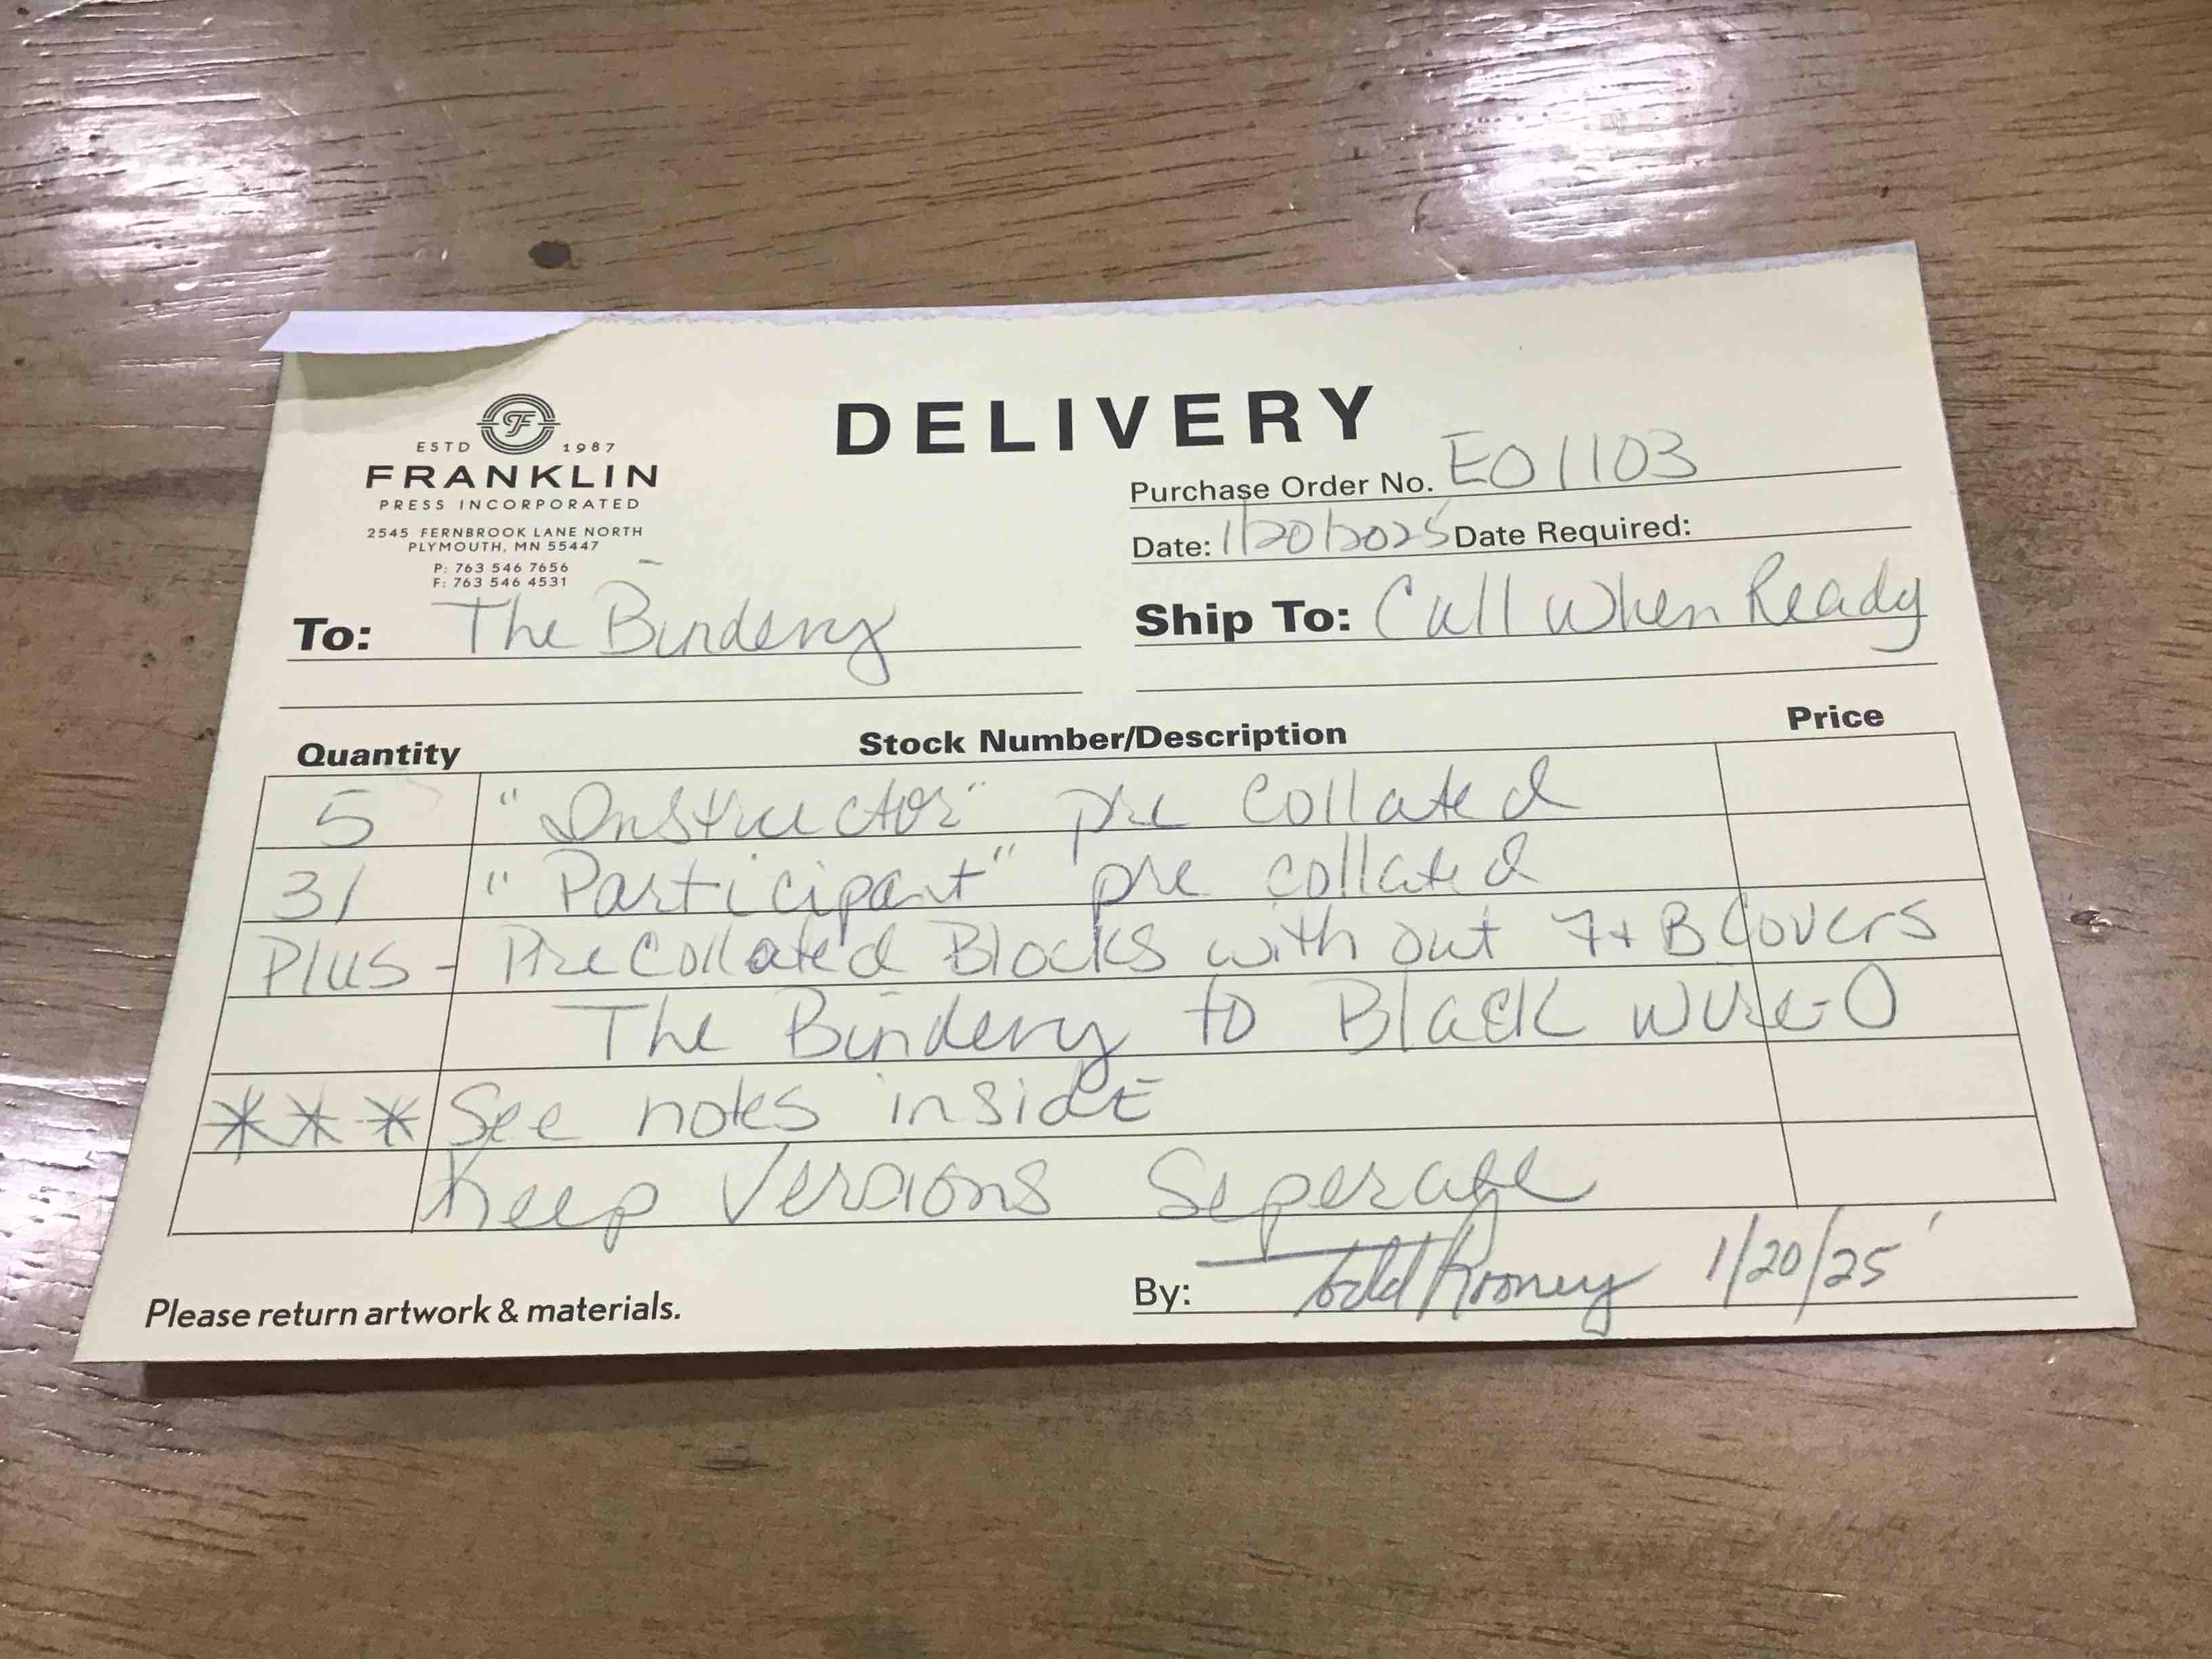 ESTD 1987
FRANKLIN
PRESS INCORPORATED
2545 FERNBROOK LANE NORTH
PLYMOUTH, MN 55447
P: 763 546 7656
F: 763 546 4531
DELIVERY
Purchase Order No. E01103
Date: 1/20/2025 Date Required:
To: The Bindery
Ship To: Call When Ready
Quantity Stock Number/Description Price
5 "Instructor" pre collated
31 "Participant" pre collated
Plus - Pre Collated Blocks with out F + B Covers
The Bindery to Black wire-O
*** See notes inside
Keep Versions Seperate
Please return artwork & materials.
By: Todd Rooney 1/20/25